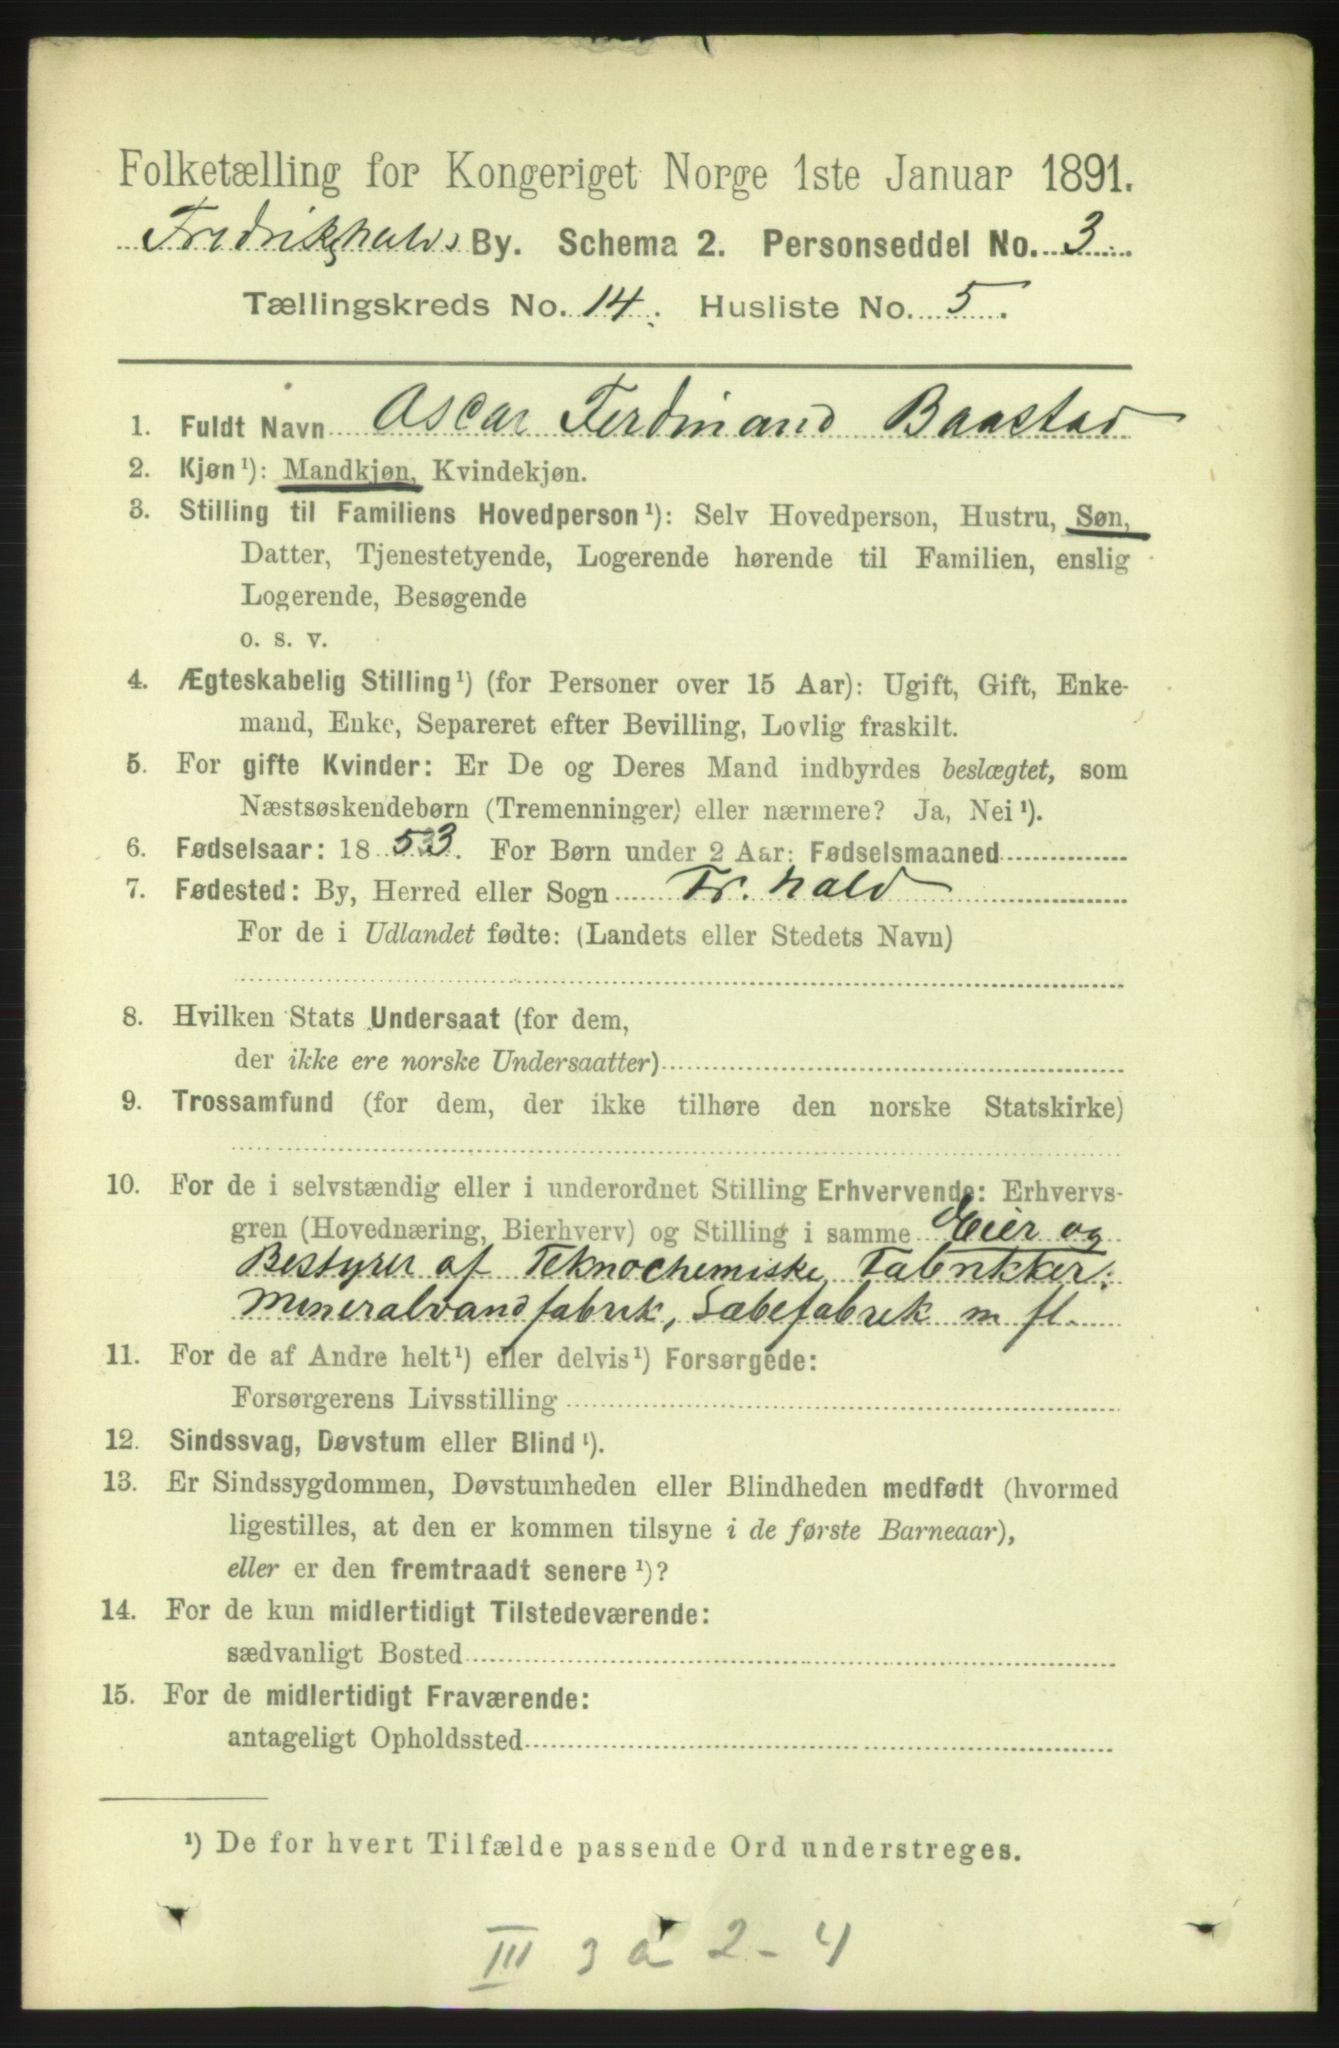 Folketælling for Kongeriget Norge 1ste Januar 1891.
Fredrikshalds By. Schema 2. Personseddel No. 3
Tællingskreds No. 14. Husliste No. 5.
1. Fuldt Navn Oscar Ferdinand Baastad
2. Kjøn¹): Mandkjøn, Kvindekjøn.
3. Stilling til Familiens Hovedperson¹): Selv Hovedperson, Hustru, Søn,
Datter, Tjenestetyende, Logerende hørende til Familien, enslig
Logerende, Besøgende
o. s. v.
4. Ægteskabelig Stilling¹) (for Personer over 15 Aar): Ugift, Gift, Enke-
mand, Enke, Separeret efter Bevilling, Lovlig fraskilt.
5. For gifte Kvinder: Er De og Deres Mand indbyrdes beslægtet, som
Næstsøskendebørn (Tremenninger) eller nærmere? Ja, Nei¹).
6. Fødselsaar: 18 53. For Børn under 2 Aar: Fødselsmaaned
7. Fødested: By, Herred eller Sogn Fr. hald
For de i Udlandet fødte: (Landets eller Stedets Navn)
8. Hvilken Stats Undersaat (for dem,
der ikke ere norske Undersaatter)
9. Trossamfund (for dem, der ikke tilhøre den norske Statskirke)
10. For de i selvstændig eller i underordnet Stilling Erhvervende: Erhvervs-
gren (Hovednæring, Bierhverv) og Stilling i samme Eier og
Bestyrer af Teknochemiske Fabrikker:
Mineralvandfabrik, Sæbefabrik m fl.
11. For de af Andre helt¹) eller delvis¹) Forsørgede:
Forsørgerens Livsstilling
12. Sindssvag, Døvstum eller Blind¹).
13. Er Sindssygdommen, Døvstumheden eller Blindheden medfødt (hvormed
ligestilles, at den er kommen tilsyne i de første Barneaar),
eller er den fremtraadt senere¹)?
14. For de kun midlertidigt Tilstedeværende:
sædvanligt Bosted
15. For de midlertidigt Fraværende:
antageligt Opholdssted
¹) De for hvert Tilfælde passende Ord understreges.
III 3 a 2-4